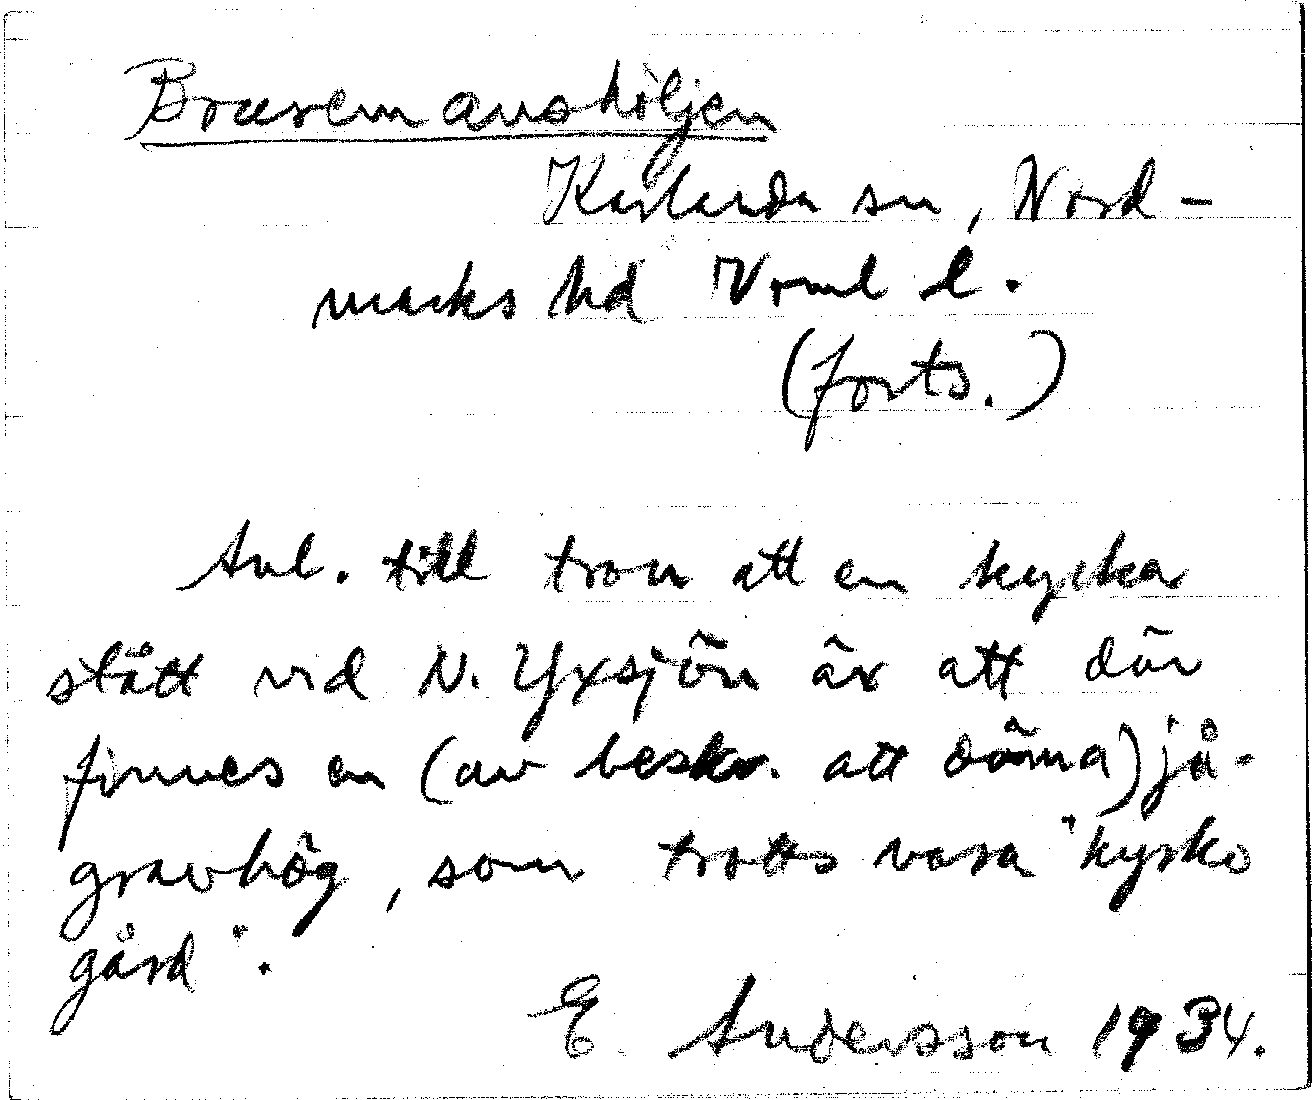 Karlanda sn, Nord-
marks hd Vrml l.
(forts.)
Anl. till tron att en kyrka
stått vid N. Yxsjön är att där
finnes en (av beskr. att döma) jä-
gravhög, som trotts vara "kyrko
gård".
E. Andersson 1934.